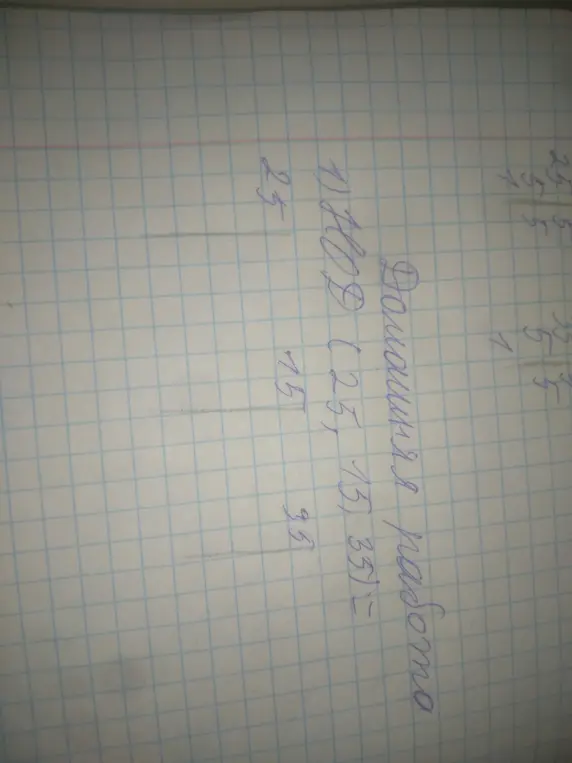 25 5
5 5 5
1 1
Домашняя работа
1) НОД (25, 15, 35) =
25 15 35